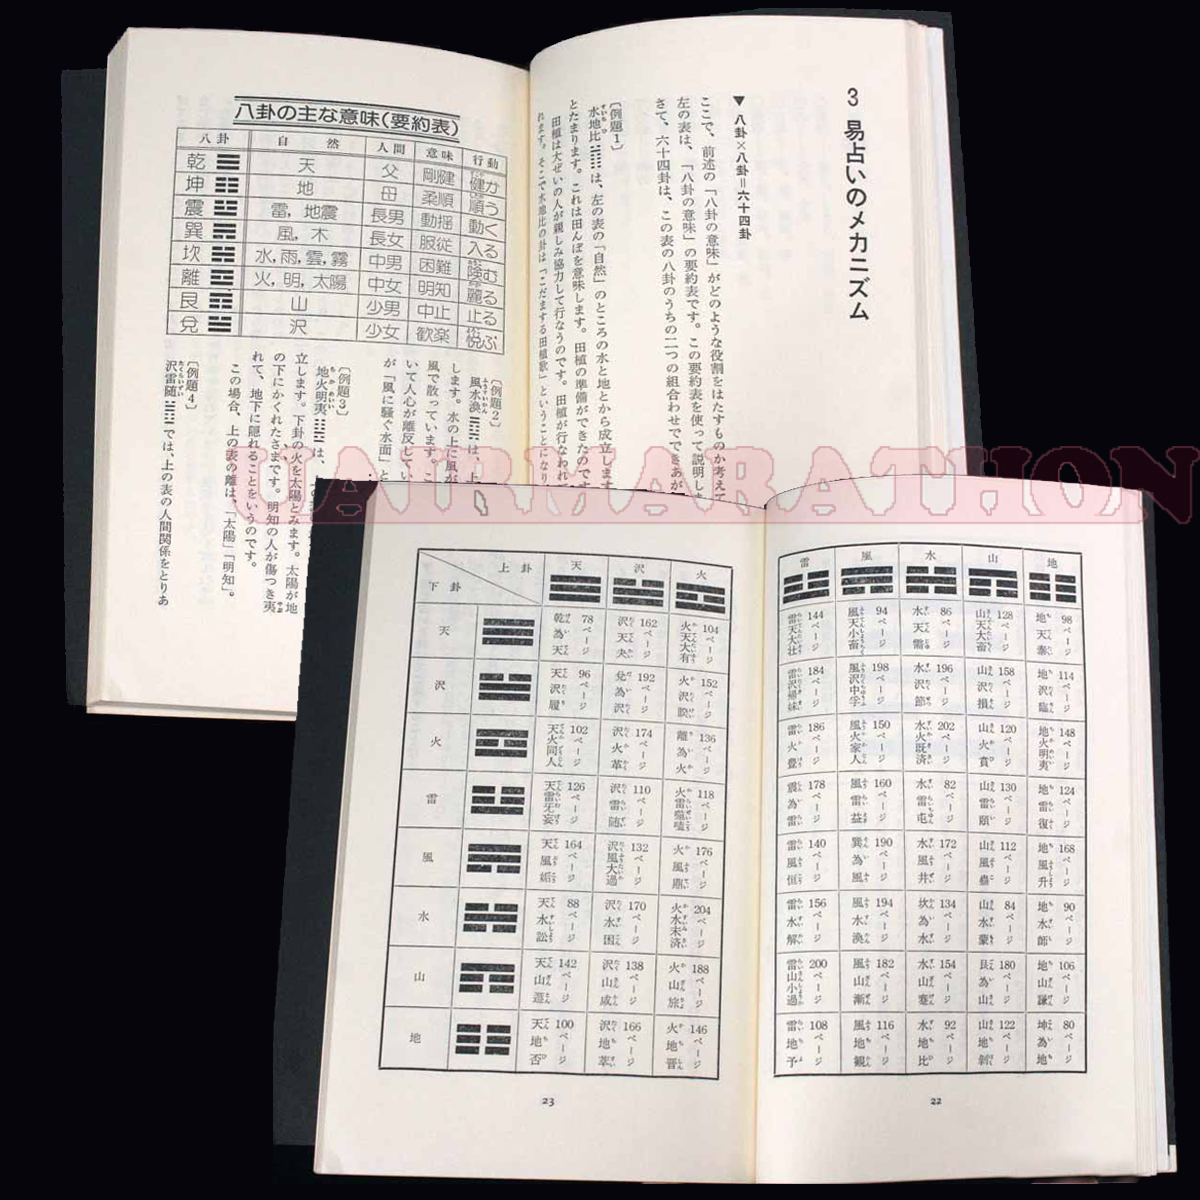 3 易占いのメカニズム
▼八卦×八卦=六十四卦
ここで、前述の「八卦の意味」がどのような役割をはたすものか考えて
左の表は、「八卦の意味」の要約表です。この要約表を使って説明しま
さて、六十四卦は、この表の八卦のうちの二つの組合わせでできあが
〔例題1〕
水地比は、左の表の「自然」のところの水と地とから成立します
とたまります。これは田んぼを意味します。田植の準備ができたのです
田植は大ぜいの人が親しみ協力して行なうのです。田植が行なわれて
れます。そこで水地比の卦は「こだまする田植歌」ということになり
八卦の主な意味(要約表)
八卦 自然 人間 意味 行動
乾 天 父 剛健 健か
坤 地 母 柔順 順う
震 雷,地震 長男 動揺 動く
巽 風,木 長女 服従 入る
坎 水,雨,雲,霧 中男 困難 険む
離 火,明,太陽 中女 明知 麗る
艮 山 少男 中止 止る
兌 沢 少女 歓楽 悦ぶ
〔例題2〕
風水渙は、上
します。水の上に風が
風で散っています。こ
いて人心が離反してい
が「風に騒ぐ水面」と
〔例題3〕
地火明夷は、
立します。下卦の火を太陽とみます。太陽が地
の下にかくれたさまです。明知の人が傷つき夷
れて、地下に隠れることをいうのです。
この場合、上の表の離は、「太陽」「明知」。
〔例題4〕
沢雷随では、上の表の人間関係をとりあ
CAIRMARATHON
上卦 下卦 天 沢 火
天 78ページ 乾為天 162ページ 沢天夬 104ページ 火天大有
沢 96ページ 天沢履 192ページ 兌為沢 152ページ 火沢睽
火 102ページ 天火同人 174ページ 沢火革 136ページ 離為火
雷 126ページ 天雷无妄 110ページ 沢雷随 118ページ 火雷噬嗑
風 164ページ 天風姤 132ページ 沢風大過 176ページ 火風鼎
水 88ページ 天水訟 170ページ 沢水困 204ページ 火水未済
山 142ページ 天山遯 138ページ 沢山咸 188ページ 火山旅
地 100ページ 天地否 166ページ 沢地萃 146ページ 火地晋
23
雷 風 水 山 地
144ページ 雷天大壮 94ページ 風天小畜 86ページ 水天需 128ページ 山天大畜 98ページ 地天泰
184ページ 雷沢帰妹 198ページ 風沢中孚 196ページ 水沢節 158ページ 山沢損 114ページ 地沢臨
186ページ 雷火豊 150ページ 風火家人 202ページ 水火既済 120ページ 山火賁 148ページ 地火明夷
178ページ 震為雷 160ページ 風雷益 82ページ 水雷屯 130ページ 山雷頤 124ページ 地雷復
140ページ 雷風恒 190ページ 巽為風 172ページ 水風井 112ページ 山風蠱 168ページ 地風升
156ページ 雷水解 194ページ 風水渙 134ページ 坎為水 84ページ 山水蒙 90ページ 地水師
200ページ 雷山小過 182ページ 風山漸 154ページ 水山蹇 180ページ 艮為山 106ページ 地山謙
108ページ 雷地予 116ページ 風地観 92ページ 水地比 122ページ 山地剝 80ページ 坤為地
22